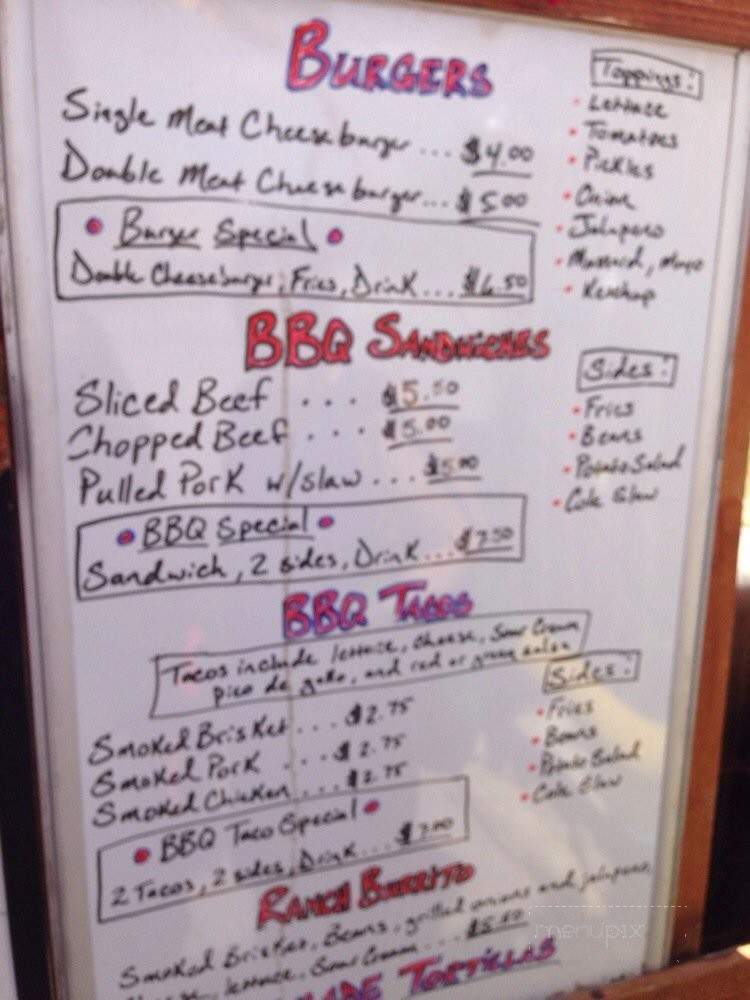 BURGERS
Single Meat Cheeseburger ... $4.00
Double Meat Cheeseburger... $5.00
Burger Special
Double Cheeseburger, Fries, Drink... $6.50
Toppings:
Lettuce
Tomatoes
Pickles
Onion
Jalapeno
Mustard, Mayo
Ketchup
BBQ SANDWICHES
Sliced Beef ... $5.50
Chopped Beef ... $5.00
Pulled Pork w/slaw ... $5.00
BBQ Special
Sandwich, 2 sides, Drink... $7.50
Sides:
Fries
Beans
Potato Salad
Cole Slaw
BBQ TACOS
Tacos include lettuce, cheese, sour cream
pico de gallo, and red or green salsa
Smoked Brisket... $2.75
Smoked Pork ... $2.75
Smoked Chicken... $2.75
BBQ Taco Special
2 Tacos, 2 sides, Drink... $7.00
Sides:
Fries
Beans
Potato Salad
Cole Slaw
RANCH BURRITO
Smoked Brisket, Beans, grilled onions and jalapeno,
cheese, lettuce, Sour Cream ...
TORTILLAS
menupix